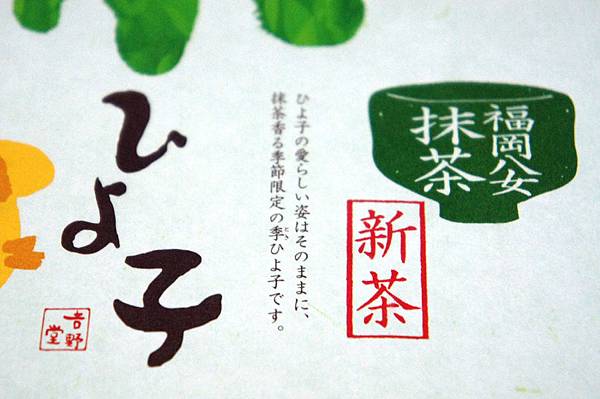 福岡八女
抹茶
新茶
ひよ子の愛らしい姿はそのままに、
抹茶香る季節限定の季ひよ子です。
ひよ子
吉野堂